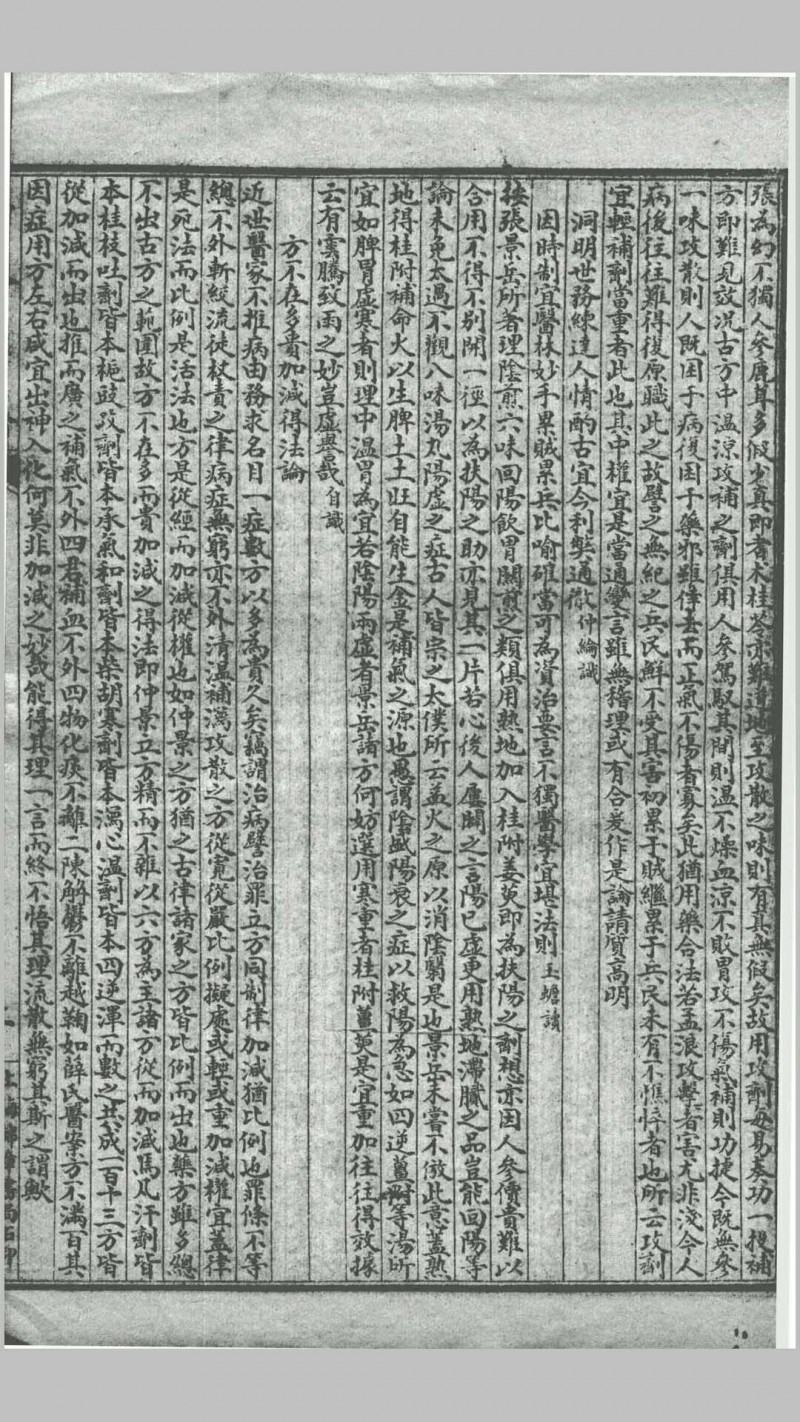 張為幻不獨人參鹿茸多假少真即耆朮桂苓亦難道地至攻散之味則有真無假矣故用攻劑每易奏功一投補
方即難見效况古方中溫涼攻補之劑俱用人參駕馭其間則溫不燥血涼不敗胃攻不傷氣補則功捷今既無參
一味攻散則人既困于病復困于藥邪雖侍去而正氣不傷者寡矣此猶用藥合法若孟浪攻擊者害尤非淺今人
病後往往難得復原職此之故譬之無紀之兵民鮮不受其害初累于賊繼累于兵民未有不憔悴者也所云攻劑
宜輕補劑當重者此也其中權宜是當通變言雖無稽理或有合爰作是論請質高明
洞明世務練達人情酌古宜今利獘通徹仲綸識
因時制宜醫林妙手累賊累兵比喻確當可為資治要言不獨醫學宜堪法則玉蟾讀
按張景岳所著理陰煎六味回陽飲胃關煎之類俱用熟地加入桂附姜萸即為扶陽之劑想亦因人參價貴難以
合用不得不別開一徑以為扶陽之助亦見其一片若心後人屢闢之言陽已虛更用熟地滯膩之品豈能回陽等
論未免太過不觀八味湯丸陽虛之症古人皆宗之太僕所云益火之原以消陰翳是也景岳未嘗不倣此意蓋熟
地得桂附補命火以生脾土土旺自能生金是補氣之源也愚謂陰盛陽衰之症以救陽為急如四逆薑附等湯所
宜如脾胃虛寒者則理中溫胃為宜若陰陽兩虛者景岳諸方何妨選用寒重者桂附薑萸是宜重加往往得效據
云有雲騰致雨之妙豈虛譽哉自識
方不在多貴加減得法論
近世醫家不推病由務求名目一症數方以多為貴久矣竊謂治病譬治罪立方同制律加減猶比例也罪條不等
總不外斬絞流徒杖責之律病症無窮亦不外清溫補瀉攻散之方從寬從嚴比例擬處或輕或重加減權宜蓋律
是死法而比例是活法也方是從經而加減從權也如仲景之方猶之古律諸家之方皆比例而出也藥方雖多總
不出古方之範圍故方不在多而貴加減之得法即仲景立方精而不雜以六方為主諸方從而加減焉凡汗劑皆
本桂枝吐劑皆本梔豉攻劑皆本承氣和劑皆本柴胡寒劑皆本瀉心溫劑皆本四逆渾而數之共成一百十三方皆
從加減而出也推而廣之補氣不外四君補血不外四物化痰不離二陳解鬱不離越鞠如薛氏醫案方不滿百其
因症用方左右咸宜出神入化何莫非加減之妙哉能得其理一言而終不悟其理流散無窮其斯之謂歟